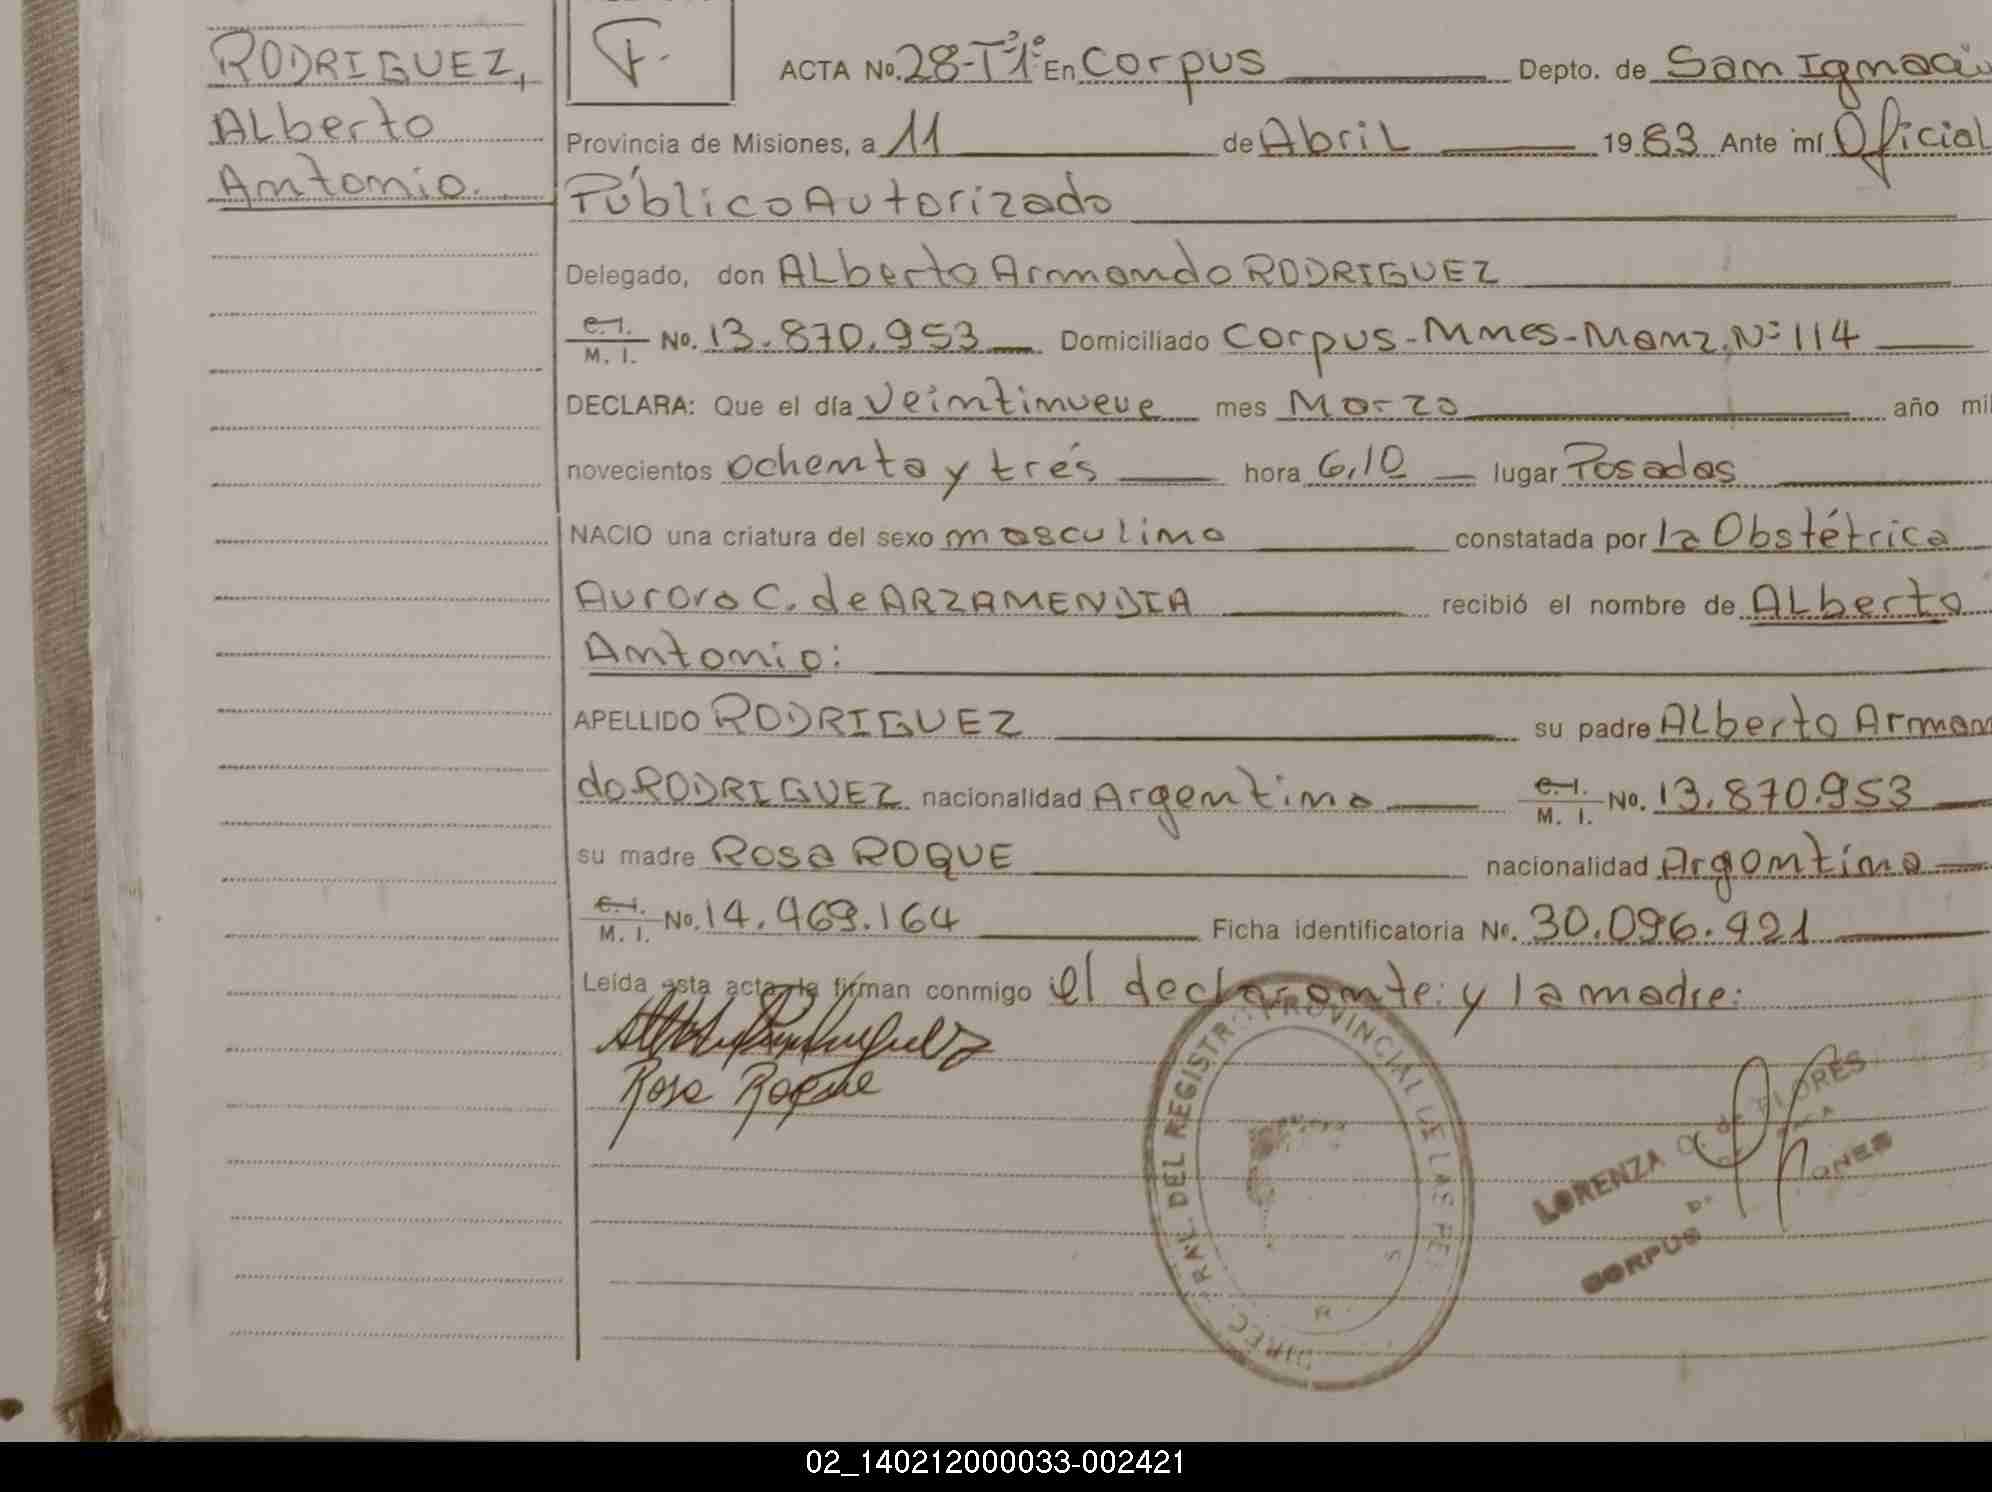 RODRIGUEZ,
ALberto
Antonio.
F.
ACTA No. 28-Tº1º En Corpus Depto. de San Ignacio
Provincia de Misiones, a 11 de Abril 1983 Ante mí Oficial
Público Autorizado
Delegado, don ALberto Armando RODRIGUEZ
C.I. M. I. No. 13.870.953 Domiciliado Corpus-Mnes-Manz.Nº 114
DECLARA: Que el día veintinueve mes Marzo año mil
novecientos ochenta y trés hora 6,10 lugar Posadas
NACIO una criatura del sexo masculino constatada por la Obstétrica
Aurora C. de ARZAMENDIA recibió el nombre de ALberto
Antonio:
APELLIDO RODRIGUEZ su padre ALberto Arman
do RODRIGUEZ nacionalidad Argentina C.I. M. I. No. 13.870.953
su madre Rosa ROQUE nacionalidad Argentina
C.I. M. I. No. 14.469.164 Ficha identificatoria No. 30.096.421
Leída esta acta la firman conmigo el declarante: y la madre:
Rosa Roque
DIREC RAL DEL REGISTRO PROVINCIAL DE LAS PE
LORENZA de FLORES
CORPUS
02_140212000033-002421